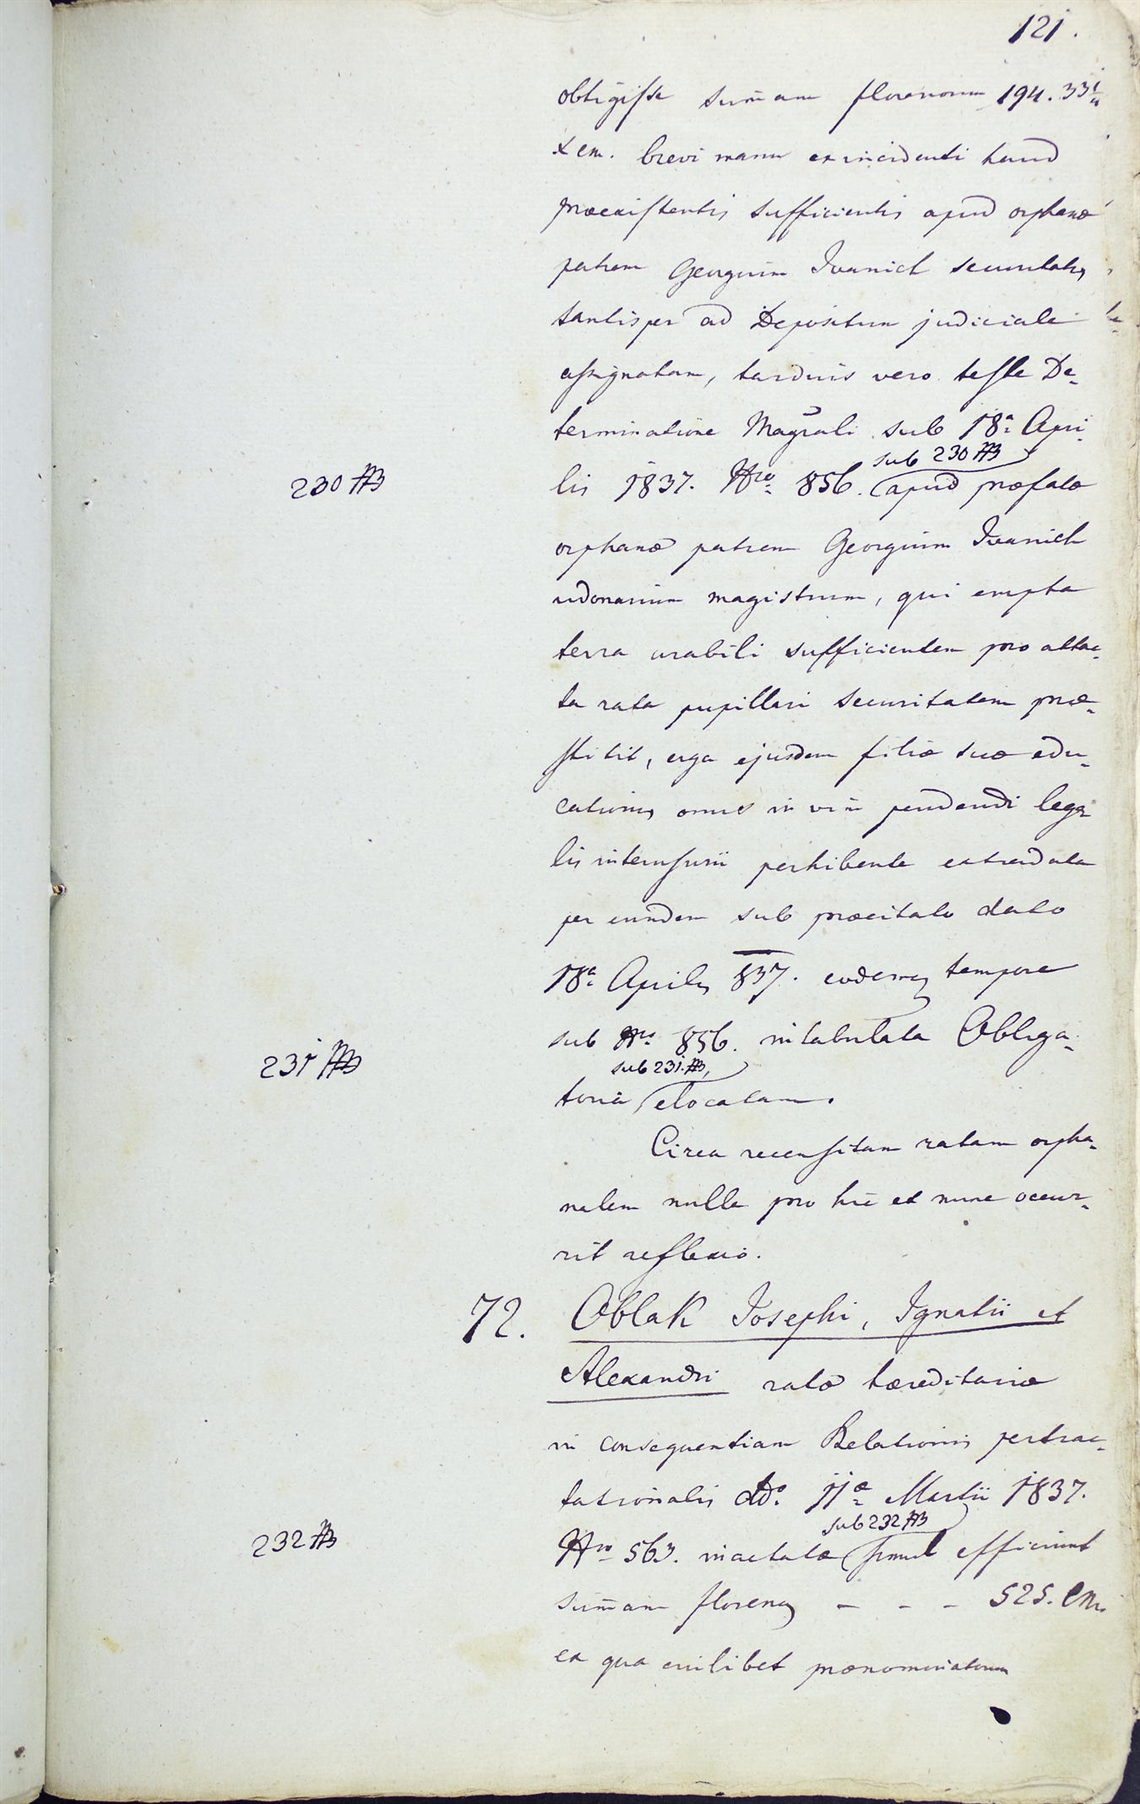 121.
obtigisse summam florenorum 194. 33¼
xem. brevi manu ex incidenti haud
praeexistentis sufficientis apud orphanae
patrem Georgium Ivanich securitatis
tantisper ad Depositum judiciale
assignatam, tardius vero teste De-
terminatione Magrali sub 18a Apri-
sub 230 ##
230 ##
lis 1837. Nro 856. apud praefatae
orphanae patrem Georgium Ivanich
udonarium magistrum, qui empta
terra arabili sufficientem pro attac-
ta rata pupillari securitatem prae-
stitit, erga ejusdem filiae suae edu-
cationis onus in vim pendendi lega-
lis interusurii perhibente extradata
per eundem sub praecitato dato
18a Aprilis 837. eodemq tempore
sub Nro 856. intabulata Obliga-
231 ##
sub 231. ##,
toria elocatam.
Circa recensitam ratam orpha-
nalem nulla pro hic et nunc occur-
rit reflexio.
72. Oblak Josephi, Ignatii et
Alexandri ratae haereditariae
in consequentiam Relationis pertrac-
tationalis ddo. 11ae Martii 1837.
sub 232 ##
232 ##
Nro 563. inactatae simul efficiunt
summam florenor – – – 525. CM.
ex qua cuilibet praenominatorum